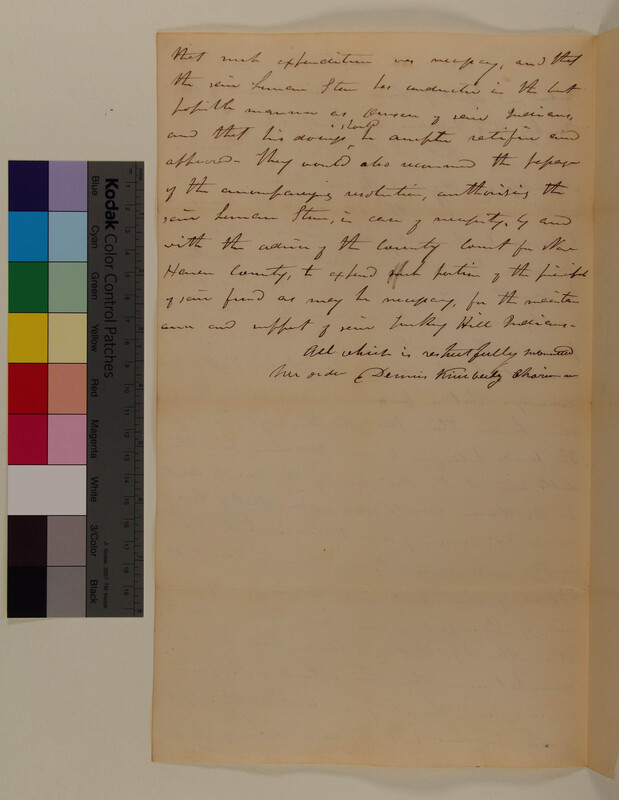 that such expenditure was necessary, and that
the said Leman Stone has conducted in the best
possible manner as Overseer of said Indians,
and that his doings should be ample ratified and
approved - They would also recommend the passage
of the accompanying resolution, authorising the
said Leman Stone, in case of necessity, by and
with the advice of the County Court for New
Haven County, to expend such portion of the principal
of said fund as may be necessary, for the mainten
ance and support of said Turkey Hill Indians -
All which is respectfully submitted
Per order Dennis Kimberly Chairman
Kodak Color Control Patches
Blue Cyan Green Yellow Red Magenta White 3/Color Black